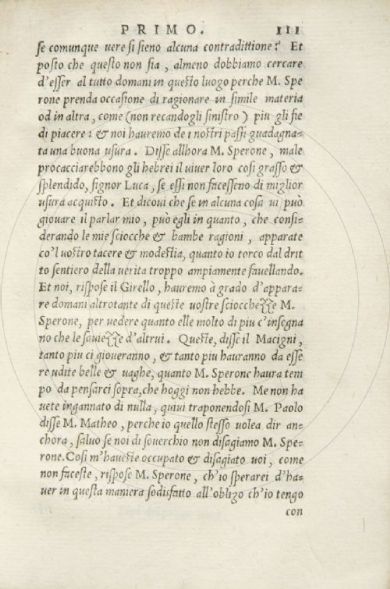 PRIMO. III
se comunque uere si sieno alcuna contradittione? Et
posto che questo non sia, almeno dobbiamo cercare
d'esser al tutto domani in questo luogo perche M. Spe
rone prenda occasione di ragionare in simile materia
od in altra, come (non recandogli sinistro) piu gli fie
di piacere: & noi hauremo de i nostri passi guadagna-
ta una buona usura. Disse allhora M. Sperone, male
procacciarebbono gli hebrei il uiuer loro cosi grasso &
splendido, signor Luca, se essi non facesseno di miglior
usura acquisto. Et dicoui che se in alcuna cosa ui può
giouare il parlar mio, può egli in quanto, che consi-
derando le mie sciocche & bambe ragioni, apparate
co'l uostro tacere & modestia, quanto io torco dal drit
to sentiero della uerita troppo ampiamente fauellando.
Et noi, rispose il Girello, hauremo à grado d'appara-
re domani altrotante di queste uostre sciocchezze M.
Sperone, per uedere quanto elle molto di piu c'insegna
no che le sauiezze d'altrui. Queste, disse il Macigni,
tanto piu ci gioueranno, & tanto piu hauranno da esse
re udite belle & uaghe, quanto M. Sperone haura tem
po da pensarci sopra, che hoggi non hebbe. Me non ha
uete ingannato di nulla, quiui traponendosi M. Paolo
disse M. Matheo, perche io quello stesso uolea dir an-
chora, saluo se noi di souerchio non disagiamo M. Spe-
rone. Cosi m'haueste occupato & disagiato uoi, come
non faceste, rispose M. Sperone, ch'io sperarei d'ha-
uer in questa maniera sodisfatto all'obligo ch'io tengo
con